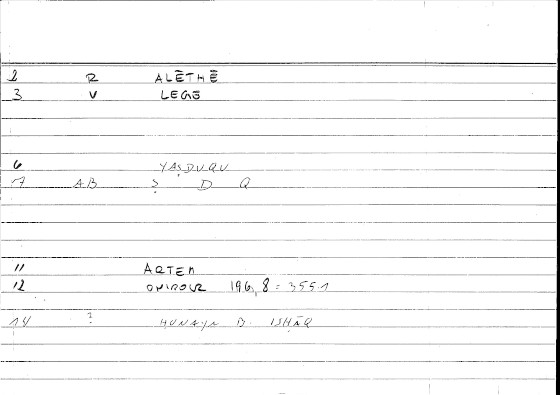 2 R ALĒTHĒ
3 V LEGŌ
6 YAṢDUQU
7 AB Ṣ D Q
11 ARTEM
12 ONIROCR 196,8 = 355.1
14 ? ḤUNAYN B. ISḤĀQ